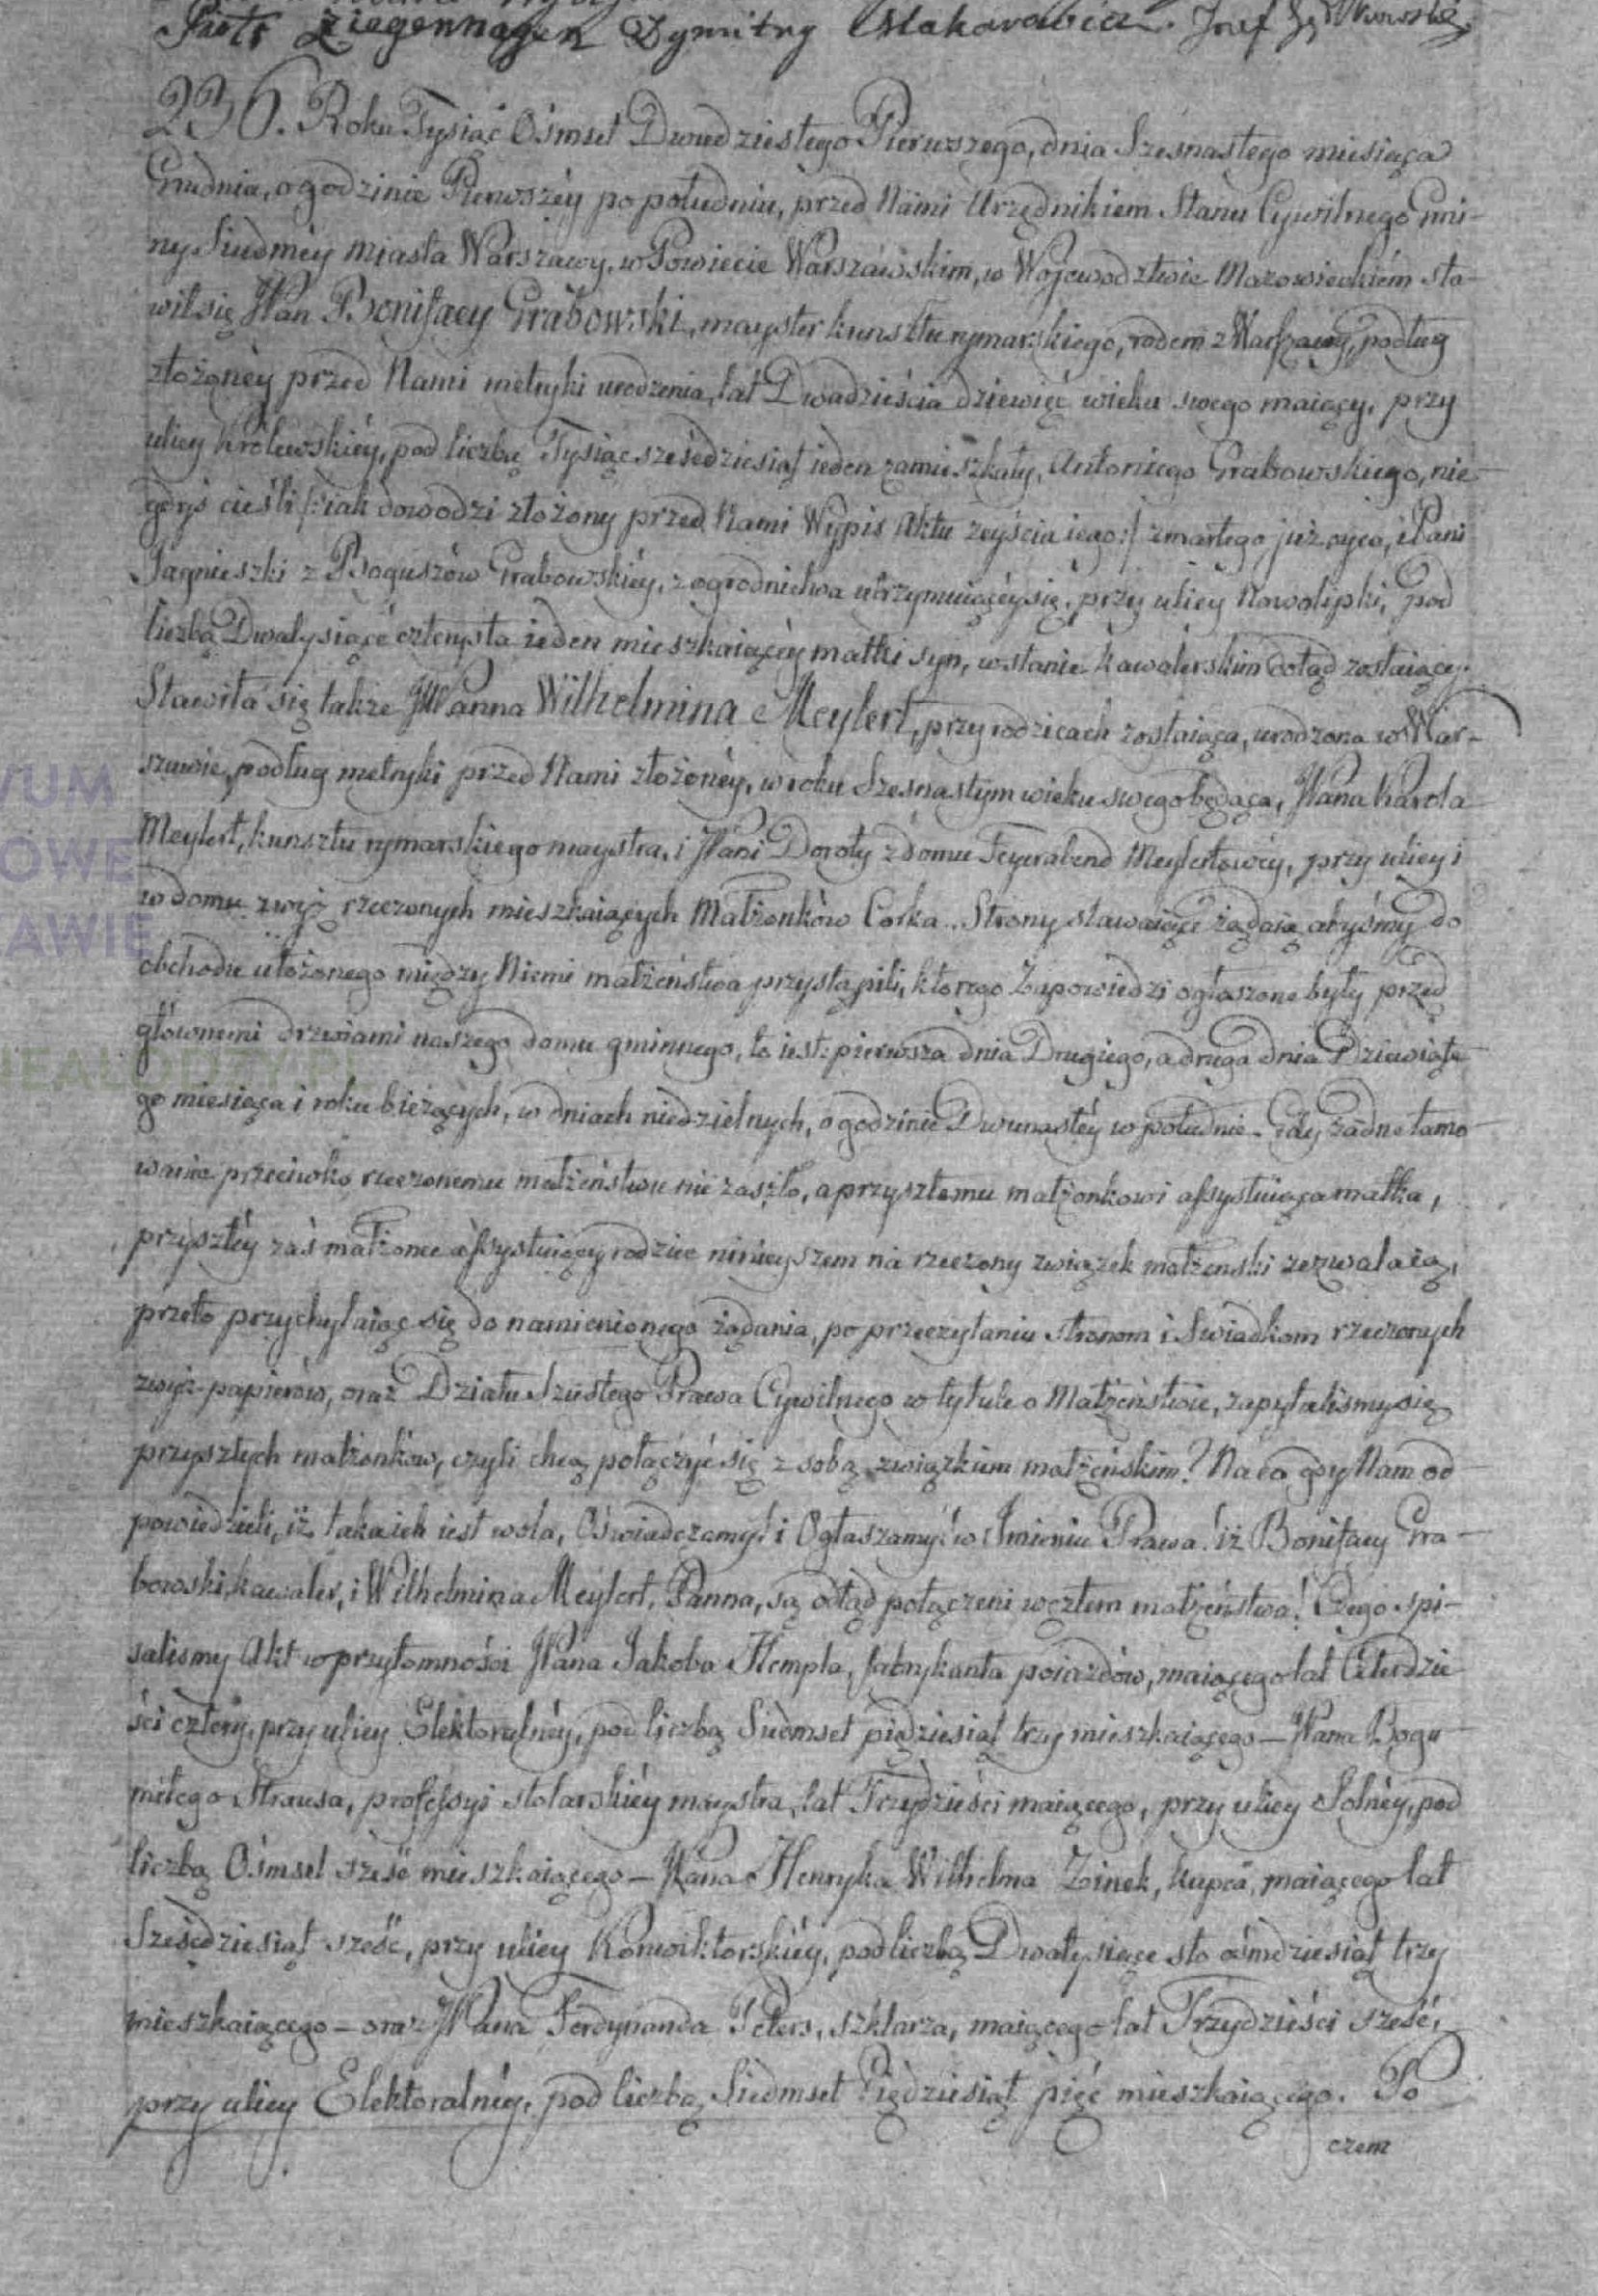 Piotr Ziegenhagen Dymitry Makarowicz. Józef
236. Roku Tysiąc Ośmset Dwudziestego Pierwszego, dnia Szesnastego miesiąca
Grudnia, o godzinie Pierwszéy po południu, przed Nami Urzędnikiem Stanu Cywilnego Gmi-
ny Siudméy Miasta Warszawy, w Powiecie Warszawskim, w Wojewodztwie Mazowieckiém sta-
wił się JPan Bonifacy Grabowski, mayster kunsztu rymarskiego, rodem z Warszawy, podług
złożonéy przed Nami metryki urodzenia, lat Dwadzieścia dziewięć wieku swego maiący, przy
ulicy Królewskiéy, pod liczbą Tysiąc sześćdziesiąt ieden zamieszkały, Antoniego Grabowskiego, nie-
gdyś cieśli /:iak dowodzi złożony przed Nami Wypis Aktu zeyścia iego:/ zmarłego już oyca, i Pani
Jagnieszki z Boguszów Grabowskiéy, z ogrodnictwa utrzymuiącéy się, przy ulicy Nowolipki, pod
liczbą Dwatysiące czterysta ieden mieszkaiącéy matki syn, w stanie kawalerskim dotąd zostaiący.
Stawiła się także JPanna Wilhelmina Meylert, przy rodzicach zostaiąca, urodzona w War-
szawie, podług metryki przed Nami złożonéy, w roku Szesnastym wieku swego będąca, JPana Karola
Meylert, kunsztu rymarskiego maystra, i JPani Doroty z domu Feyerabend Meylertowéy, przy ulicy i
w domu zwyż rzeczonych mieszkaiących Małżonków Córka. Strony stawaiące żądaią abyśmy do
obchodu ułożonego między Niemi małżeństwa przystąpili, którego Zapowiedzi ogłaszone były przed
głównemi drzwiami naszego domu gminnego, to iest: pierwsza dnia Drugiego, a druga dnia Dziewiąte-
go miesiąca i roku bieżących, w dniach niedzielnych, o godzinie Dwunastéy w południe. Gdy żadne tamo-
wanie przeciwko rzeczonemu małżeństwu nie zaszło, a przyszłemu małżonkowi assystuiąca matka,
przyszłéy zaś małżonce assystuiący rodzice ninieyszem na rzeczony związek małżenski zezwalaią,
przeto przychylaiąc się do namienionego żądania, po przeczytaniu stronom i Swiadkom rzeczonych
zwyż papierów, oraz Działu Szóstego Prawa Cywilnego w tytule o Małżeństwie, zapytalismy się
przyszłych małżonków, czyli chcą połączyć się z sobą związkiem małżeńskim? Na co gdy Nam od-
powiedzieli, iż taka ich iest wola, Oświadczamy! i Ogłaszamy! w Imieniu Prawa! iż Bonifacy Gra-
bowski, kawaler, i Wilhelmina Meylert, Panna, są odtąd połączeni węzłem małżeństwa! Czego spi-
salismy Akt w przytomności JPana Jakoba Hempla, fabrykanta poiazdów, maiącego lat Czterdzie-
ści cztery, przy ulicy Elektoralnéy, pod liczbą Siedmset pięćdziesiąt trzy mieszkaiącego — JPana Bogu-
miłego Strausa, professyi stolarskiéy maystra, lat Trzydzieści maiącego, przy ulicy Solnéy, pod
liczbą Ośmset sześć mieszkaiącego — JPana Henryka Wilhelma Zinek, kupca, maiącego lat
Sześćdziesiąt sześć, przy ulicy Konwiktorskiéy, pod liczbą Dwatysiące sto ośmdziesiąt trzy
mieszkaiącego — oraz JPana Ferdynanda Peters, szklarza, maiącego lat Trzydzieści sześć,
przy ulicy Elektoralnéy, pod liczbą Siedmset Pięćdziesiąt pięć mieszkaiącego. Po
czem